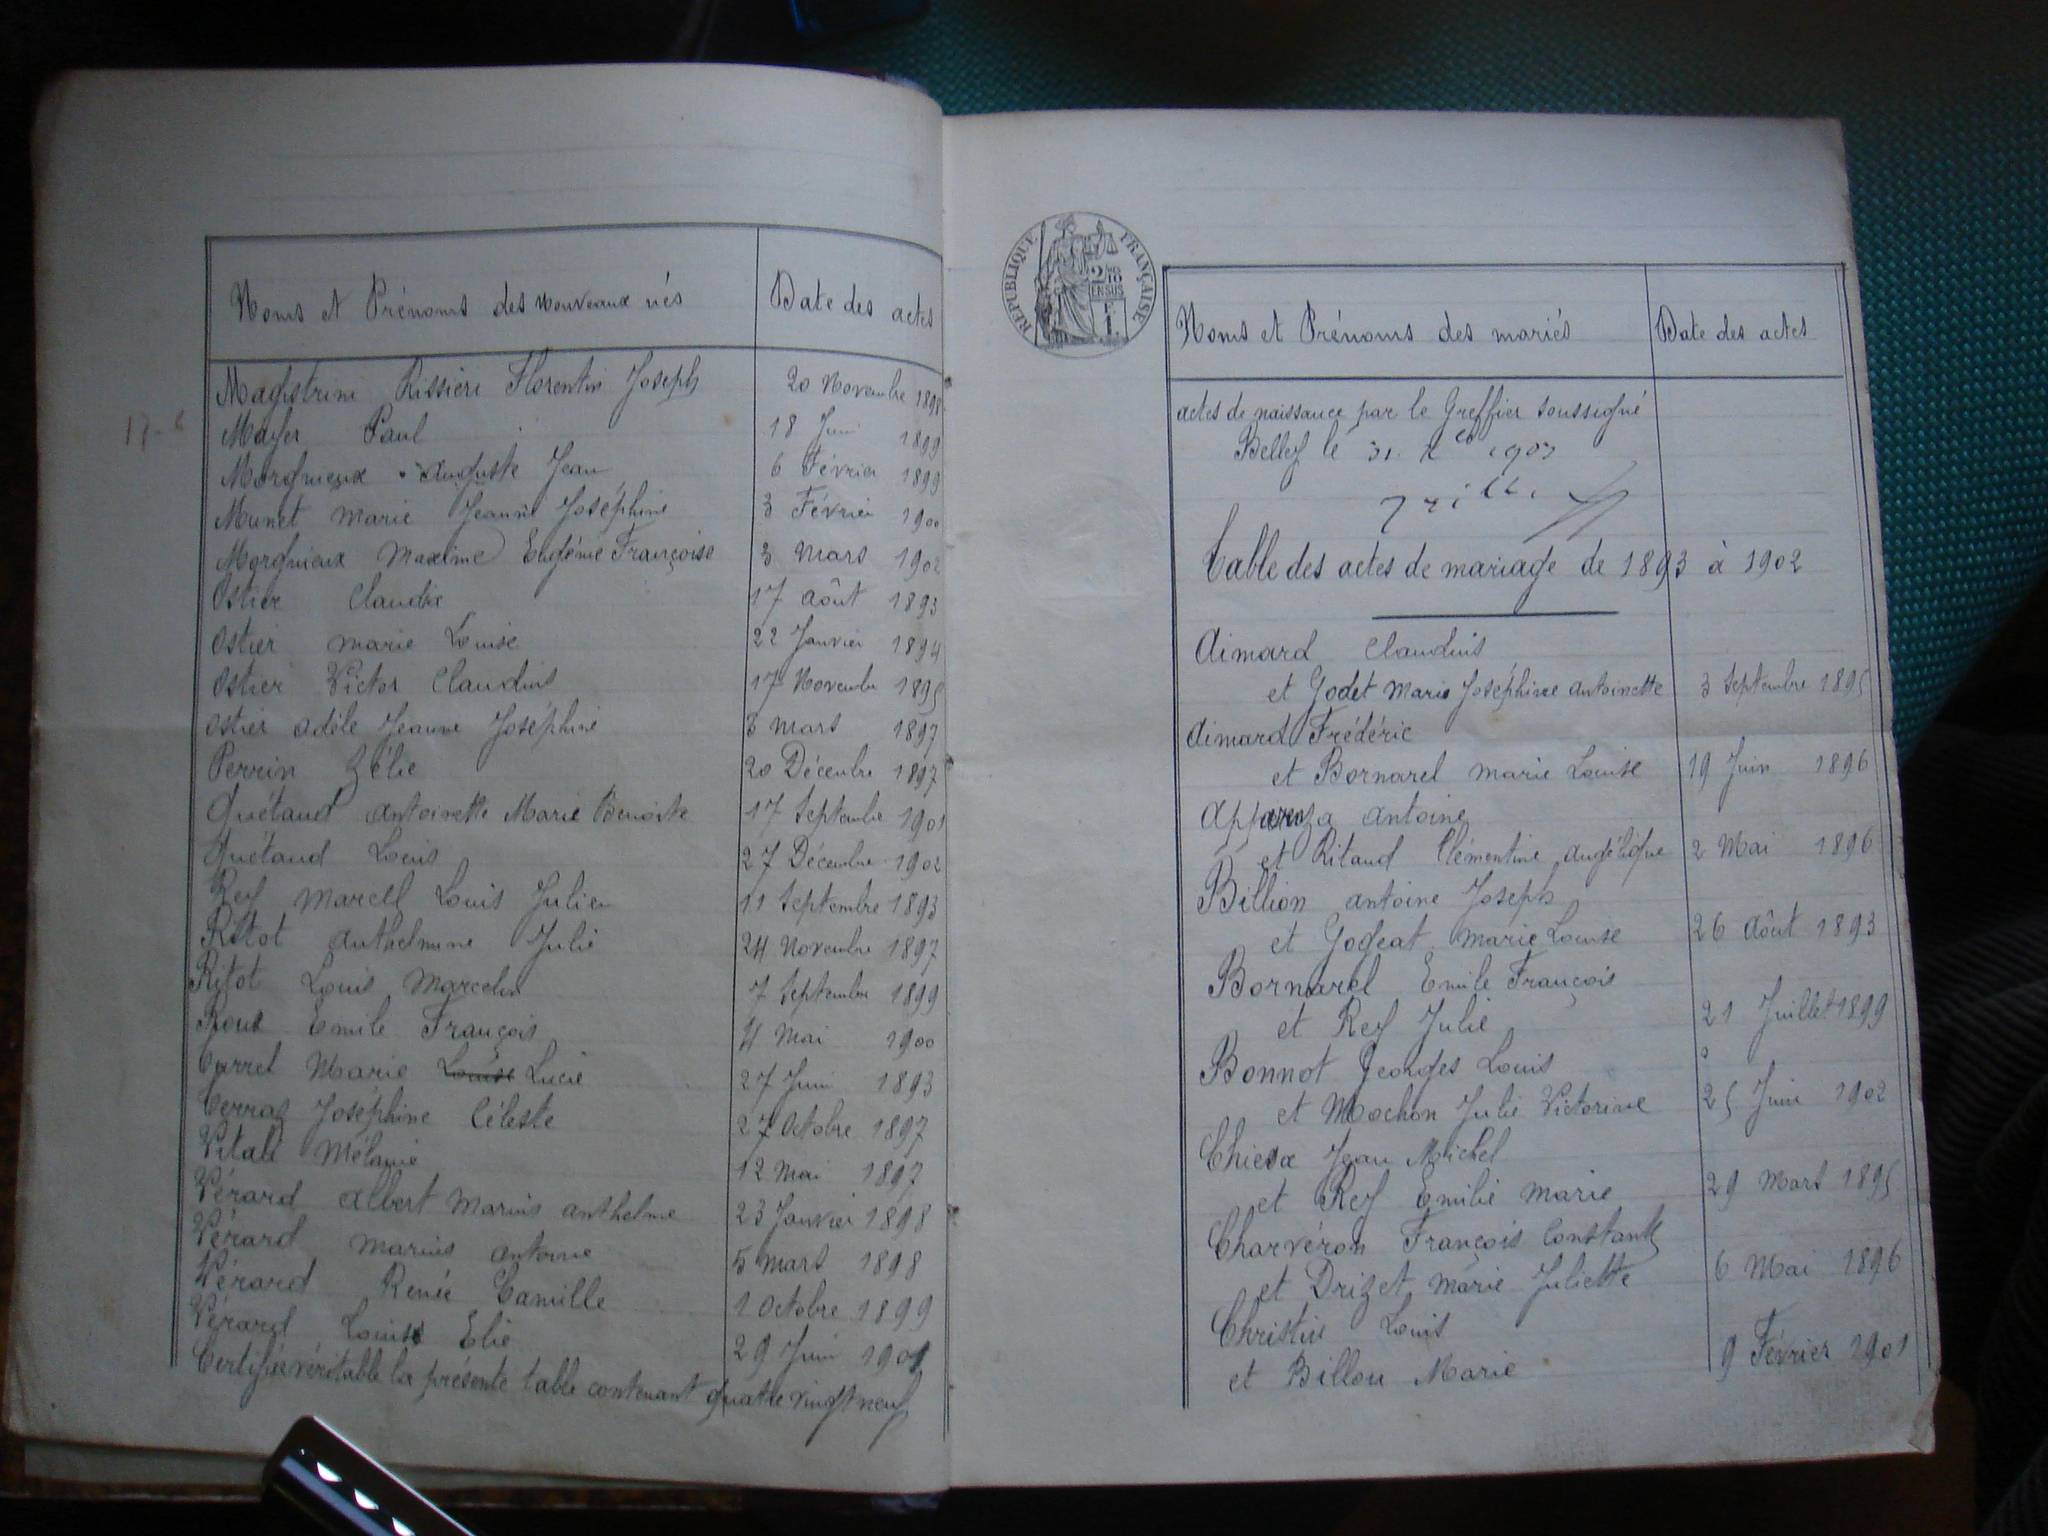 Noms et Prénoms des nouveaux nés Date des actes
Magistrini Rissieri Florentin Joseph 20 Novembre 1898
Mayer Paul 18 Juin 1899
Morgnieux Auguste Jean 6 Février 1899
Munet Marie Jeanne Joséphine 3 Février 1900
Morgnieux Maxime Eugénie Françoise 3 Mars 1902
Ostier 17 Août 1893
Ostier Marie Louise 22 Janvier 1894
Ostier Victor Claudius 17 Novembre 1895
Ostier Adèle Jeanne Joséphine 3 Mars 1897
Perrin Zélie 20 Décembre 1897
Quétaud Antoinette Marie Benoite 17 Septembre 1901
Quétaud Louis 27 Décembre 1902
Rey Marcell Louis Julien 11 Septembre 1893
Ritot Anthelmine Julie 24 Novembre 1897
Ritot Louis Marcelin 7 Septembre 1899
Roux Emile François 4 Mai 1900
Marie Louise Lucie 27 Juin 1893
Joséphine Céleste 27 Octobre 1897
Vitali Mélanie 12 Mai 1897
Vérard Albert Marius Anthelme 23 Janvier 1898
Vérard Marius Antoine 5 Mars 1898
Vérard Renée Camille 1 Octobre 1899
Vérard Louis Elie 29 Juin 1901
Certifié véritable la présente table contenant quatre vingt neuf
RÉPUBLIQUE FRANÇAISE
2/10 EN SUS
Noms et Prénoms des mariés Date des actes
actes de naissance par le Greffier soussigné
Belley le 31 Xbre 1903
Table des actes de mariage de 1893 à 1902
Aimard Claudius
et Godet Marie Joséphine Antoinette 3 Septembre 1895
Aimard Frédéric
et Bornarel Marie Louise 19 Juin 1896
Antoine
et Ritaud Clémentine Angélique 2 Mai 1896
Billion Antoine Joseph
et Gogeat Marie Louise 26 Août 1893
Bornarel Emile François
et Rey Julie 21 Juillet 1899
Bonnot Georges Louis
et Mochon Julie Victorine 25 Juin 1902
Chiesa Jean Michel
et Rey Emilie Marie 29 Mars 1895
Charvéron François Constant
et Drizet Marie Juliette 6 Mai 1896
Christin Louis
et Billou Marie 9 Février 1901